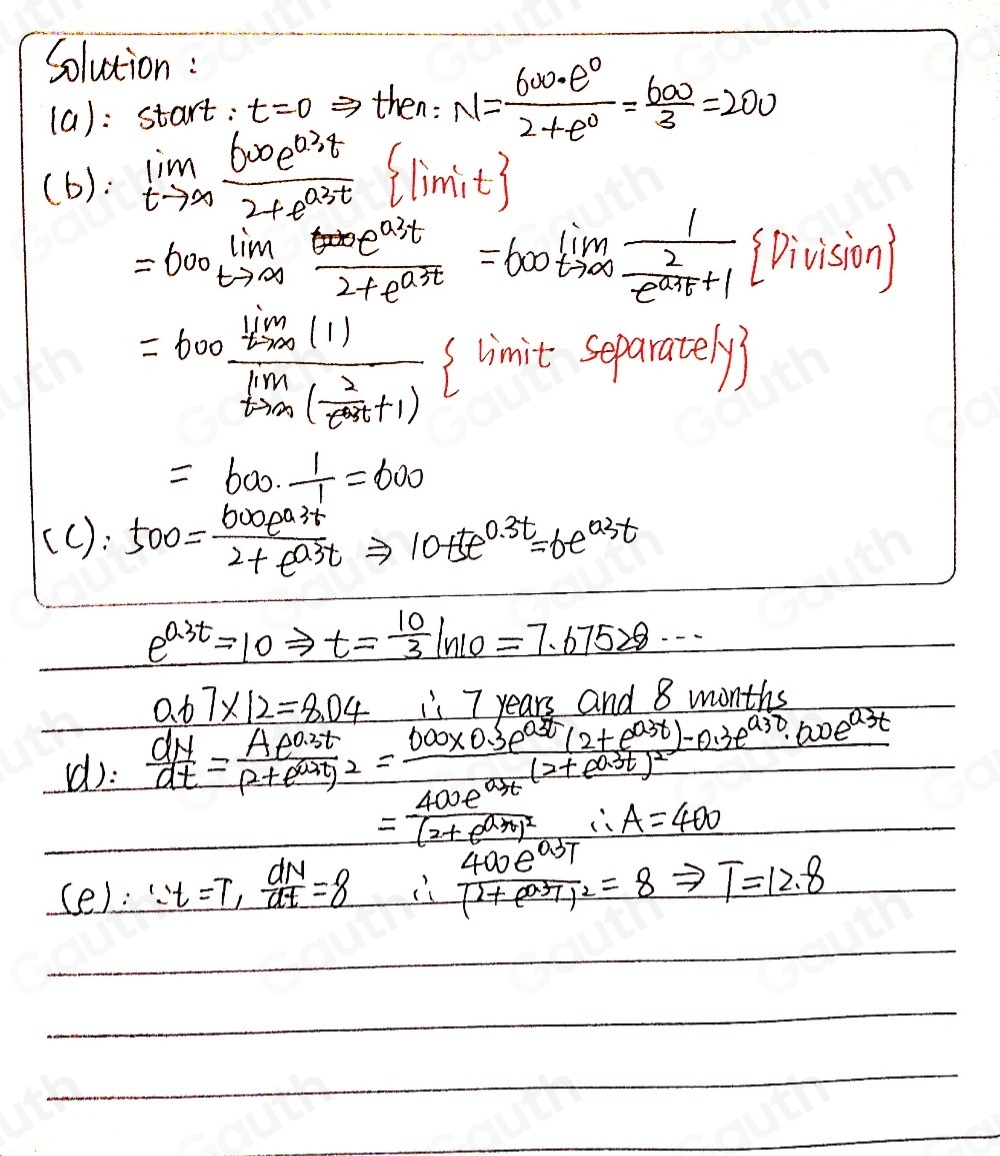 Solution :
(a): start : t=0 ⇒ then: N= 600·e^0 / 2+e^0 = 600/3 =200
(b): lim t→∞ 600e^0.3t / 2+e^0.3t {limit}
=600 lim t→∞ e^0.3t / 2+e^0.3t =600 lim t→∞ 1 / (2/e^0.3t +1) {Division}
= 600 lim t→∞ (1) / lim t→∞ (2/e^0.3t +1) { limit separately}
= 600· 1/1 =600
(C): 500= 600e^0.3t / 2+e^0.3t ⇒ 10+5e^0.3t=6e^0.3t
e^0.3t=10 ⇒ t= 10/3 ln10 =7.67528···
0.67×12=8.04 ∴ 7 years and 8 months
(d): dN/dt = Ae^0.3t / (2+e^0.3t)^2 = 600×0.3e^0.3t (2+e^0.3t)-0.3e^0.3t·600e^0.3t / (2+e^0.3t)^2
= 400e^0.3t / (2+e^0.3t)^2 ∴A=400
(e): ∵t=T, dN/dt =8 ∴ 400e^0.3T / (2+e^0.3T)^2 = 8 ⇒ T=12.8